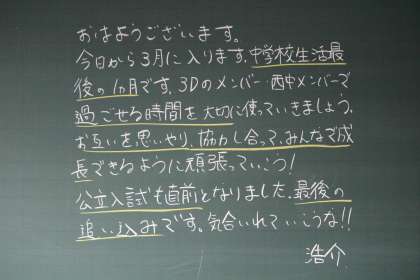 おはようございます。
今日から3月に入ります。中学校生活最
後の1ヵ月です。3Dのメンバー・西中メンバーで
過ごせる時間を大切に使っていきましょう。
お互いを思いやり、協力し合って、みんなで成
長できるように頑張っていこう!
公立入試も直前となりました。最後の
追い込みです。気合いれていこうな!!
浩介